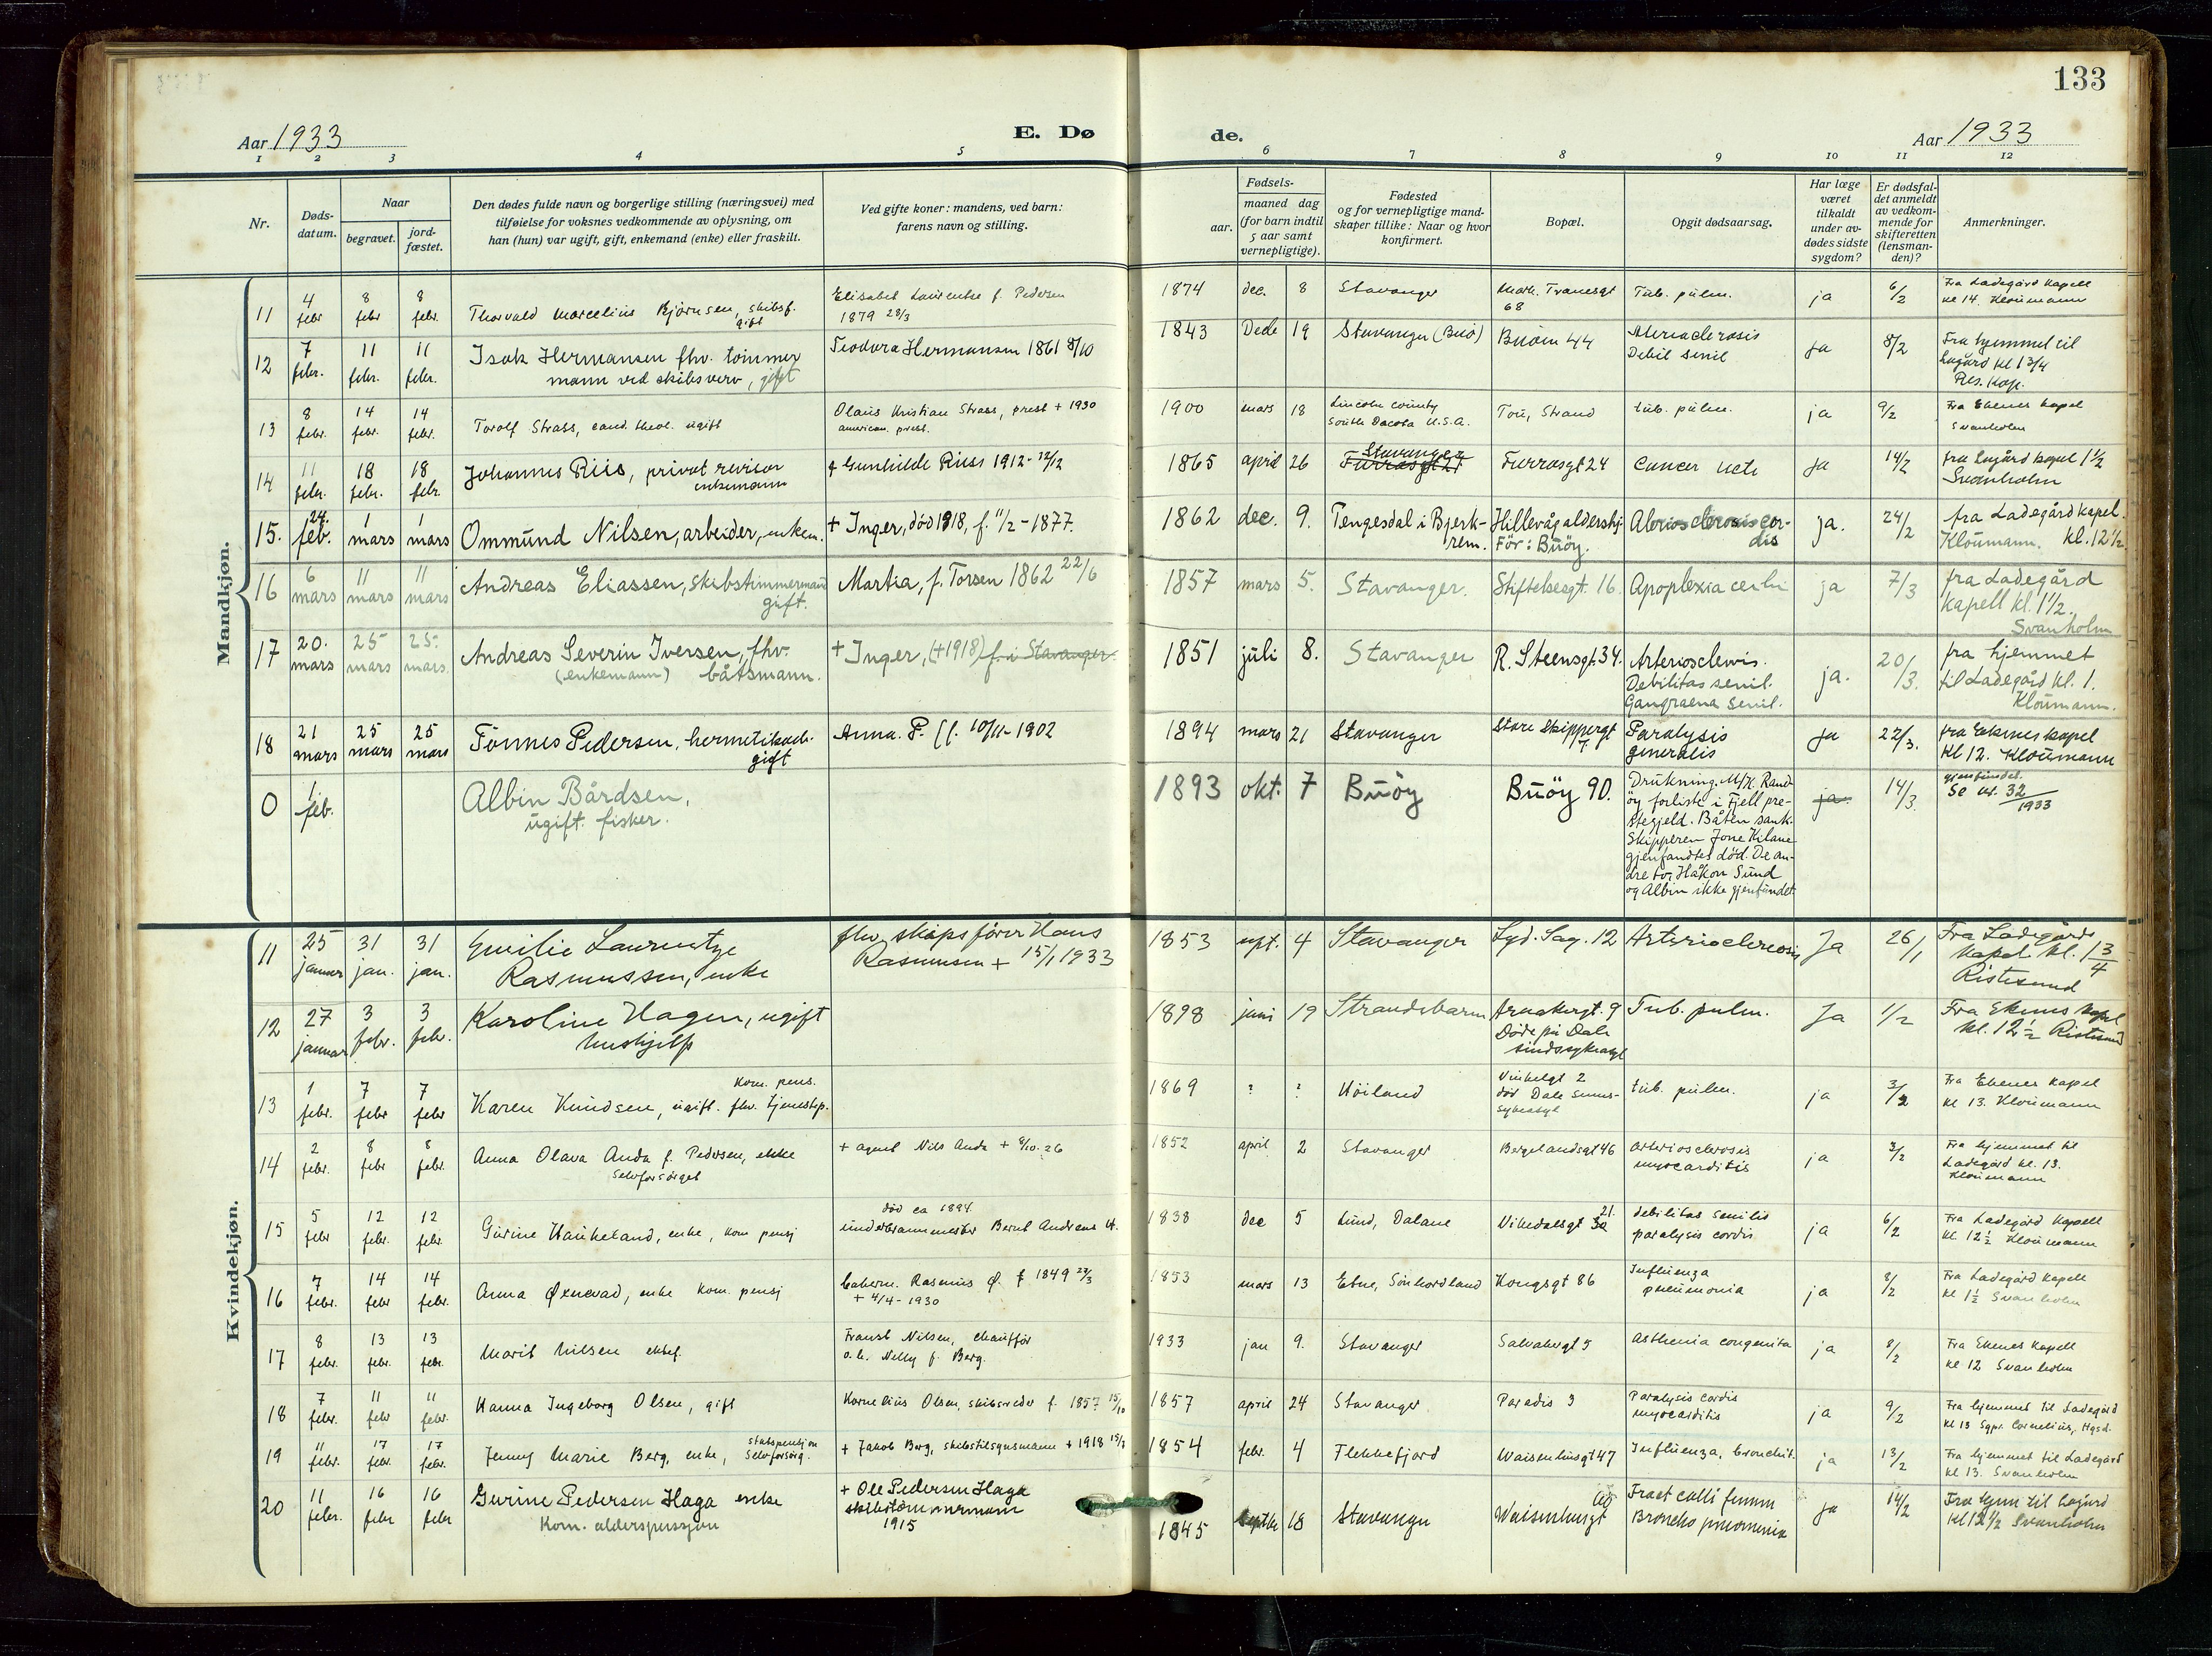 133
Aar 1933
E. Dø
de.
Aar 1933
1 2 3 4 5 6 7 8 9 10 11 12
Nr.
Døds-
datum.
Naar
begravet.
jord-
fæstet.
Den dødes fulde navn og borgerlige stilling (næringsvei) med
tilføielse for voksnes vedkommende av oplysning, om
han (hun) var ugift, gift, enkemand (enke) eller fraskilt.
Ved gifte koner: mandens, ved barn:
farens navn og stilling.
aar.
Fødsels-
maaned dag
(for barn indtil
5 aar samt
vernepligtige).
Fødested
og for vernepligtige mand-
skaper tillike: Naar og hvor
konfirmert.
Bopæl.
Opgit dødsaarsag.
Har læge
været
tilkaldt
under av-
dødes sidste
sygdom?
Er dødsfal-
det anmeldt
av vedkom-
mende for
skifteretten
(lensman-
den)?
Anmerkninger.
Mandkjøn.
11 4 febr 8 febr 8 febr. Thorvald Marcelius Bjørnsen, skibsf. gift
Elisabet Laurentse f. Pedersen 1879 28/3
1874 dec. 8 Stavanger Math. Tranesgt 68 Tub. pulm. ja 6/2 Fra Ladegård Kapell
kl 14. Kloumann
12 7 febr. 11 febr. 11 febr. Isak Hermansen fhv. tømmer
mann ved skibsverv, gift
Teodora Hermansen 1861 8/10
1843 Dede 19 Stavanger (Buø) Buøen 44 Debil senil ja 8/2 Fra hjemmet til
Lagård kl 1 3/4
Res. Kap.
13 8 febr. 14 febr. 14 febr. Torolf Strass, cand. theol. ugift
Olaus Kristian Strass, prest + 1930
american. prest.
1900 mars 18 Lincoln county
South Dacota U.S.A. Tou, Strand tub. pulm. ja 9/2 Fra Ekenes Kapel
Svanholm
14 11 febr. 18 febr. 18 febr. Johannes Riis, privat revisor
enkemann
+ Gunhilde Riis 1912 - 12/12
1865 april 26 Stavanger Furrasgt 24 Cancer ja 14/2 fra Lagård kapel 1 1/2
Svanholm
15. 24. feb. 1 mars 1 mars Ommund Nilsen, arbeider, enkem.
+ Inger, død 1918, f. 11/2 - 1877.
1862 dec. 9. Tengesdal i Bjerk-
rem. Hillevåg aldershj.
Før: Buøy. ja. 24/2 fra Ladegård kapel.
Kloumann. kl. 12 1/2
16 6 mars 11 mars 11 mars Andreas Eliassen, skibstimmermann
gift.
Martia, f. Torsen 1862 22/6
1857 mars 5. Stavanger. Stiftelsesgt. 16. Apoplexia ja 7/3 fra Ladegård
kapell kl. 1 1/2.
Svanholm
17 20. mars 25 mars 25. mars. Andreas Severin Iversen, fhv.
(enkemann) båtsmann.
+ Inger, (+1918) f. i Stavanger.
1851 juli 8. Stavanger R. Steensgt. 34. Debilitas senil.
Gangraena senil. ja. 20/3. fra hjemmet
til Ladegård kl. 1.
Kloumann.
18 21 mars 25 mars 25 mars Tønnes Pedersen, hermetikarb.
gift
Anna. P. f. 10/11 - 1902
1894 mars 21 Stavanger Store Skippergt 7. Paralysis
generalis ja 22/3. fra Ekenes kapel
kl 12. Kloumann
0 1. feb. Albin Bårdsen,
ugift. fisker.
1893 okt. 7 Buöy Buöy 90. Drukning. M/K. Rand-
öy forliste i Fjell pre-
stegjeld. Båten sank.
Skipperen Jone Kilane
gjenfandtes död. De an-
dre to, Håkon Sund
og Albin ikke gjenfundet.
ja. 14/3. gjenfundet.
Se nr. 32/1933
Kvindekjøn.
11 25 januar 31 jan. 31 jan. Emilie Laurentze
Rasmussen, enke
fhv. skipsfører Hans
Rasmussen + 15/1 1933
1853 sept. 4 Stavanger Lyd. Sag. 12 Ja 26/1 Fra Ladegårds
Kapel kl. 1 3/4
Ristesund
12 27 januar 3 febr. 3 febr. Karoline Hagen, ugift
hushjelp
1898 juni 19 Strandebarm 9
Døde på Dale
sindssykeasyl Tub. pulm. Ja 1/2 Fra Ekenes Kapel
kl. 12 1/2 Ristesund
13 1 febr. 7 febr. 7 febr Karen Knudsen, ugift. fhv. tjenestep.
Kom. pens.
1869 ? ? Höiland Vinkelgt 2
død Dale sinns-
sykeasyl tub. pulm. ja 3/2 Fra Ekenes Kapel
kl 13. Kloumann
14 2 febr. 8 febr 8 febr. Anna Olava Anda f. Pedersen, enke
selvforsørget
+ agent Nils Anda + 8/10.26
1852 april 2 Stavanger Bergelandsgt 46 arteriosclerosis
myocarditis ja 3/2 Fra hjemmet til
Ladegård kl. 13.
Kloumann
15 5 febr 12 febr. 12 febr. Gurine Haukeland, enke, kom pensj
død ca 1894
underbrannmester Bernt Andreas H.
1838 dec 5 Lund, Dalane Vikedalsgt 21. debilitas senilis
paralysis cordis ja 6/2 Fra Ladegård Kapell
kl. 12 1/2 Kloumann
16 7 febr. 14 febr 14 febr. Anna Øxnevad, enke kom. pensj
Rasmus Ø. f 1849 22/3
+ 4/4 - 1930
1853 mars 13 Etne, Sönhordland Kongsgt 86 Influenza
pneumonia ja 8/2 Fra Ladegård Kapell
kl 1 1/2 Svanholm
17 8 febr. 13 febr. 13 febr. Marit Nilsen ektef.
Franst Nilsen, chauffør
o. h. Nelly f. Berg.
1933 jan 9. Stavanger Salvabergt 5 Asthenia congenita ja 8/2 Fra Ekenes Kapell
kl 12 Svanholm
18 7 febr. 11 febr. 11 febr. Hanna Ingeborg Olsen, gift
Kornelius Olsen, skibsreder f. 1857 15/10
1857 april 24 Stavanger Paradis 3 Paralysis cordis
myocarditis ja 9/2 Fra hjemmet til Ladegård
kl 13 Sgpr. Cornelius, Hgsd.
19 11 febr. 17 febr. 17 febr. Jenny Marie Berg, enke, statspensjon
Selvforsørg.
+ Jakob Berg, skibstilsynsmann + 1918
1854 febr. 4 Flekkefjord Waisenhusgt 47 Influenza, bronchit. ja 13/2 Fra hjemmet til Ladegård
kl 13. Svanholm
20 11 febr. 16 febr 16 febr Gurine Pedersen Haga enke
Kom. alderspensjon
+ Ole Pedersen Haga
skibstømmermann
1915
1845 18 Stavanger Waisenhusgt Fract colli femm
Broncho pneumonia ja 14/2 Fra hjem til Lagård
kl 12 1/2 Svanholm